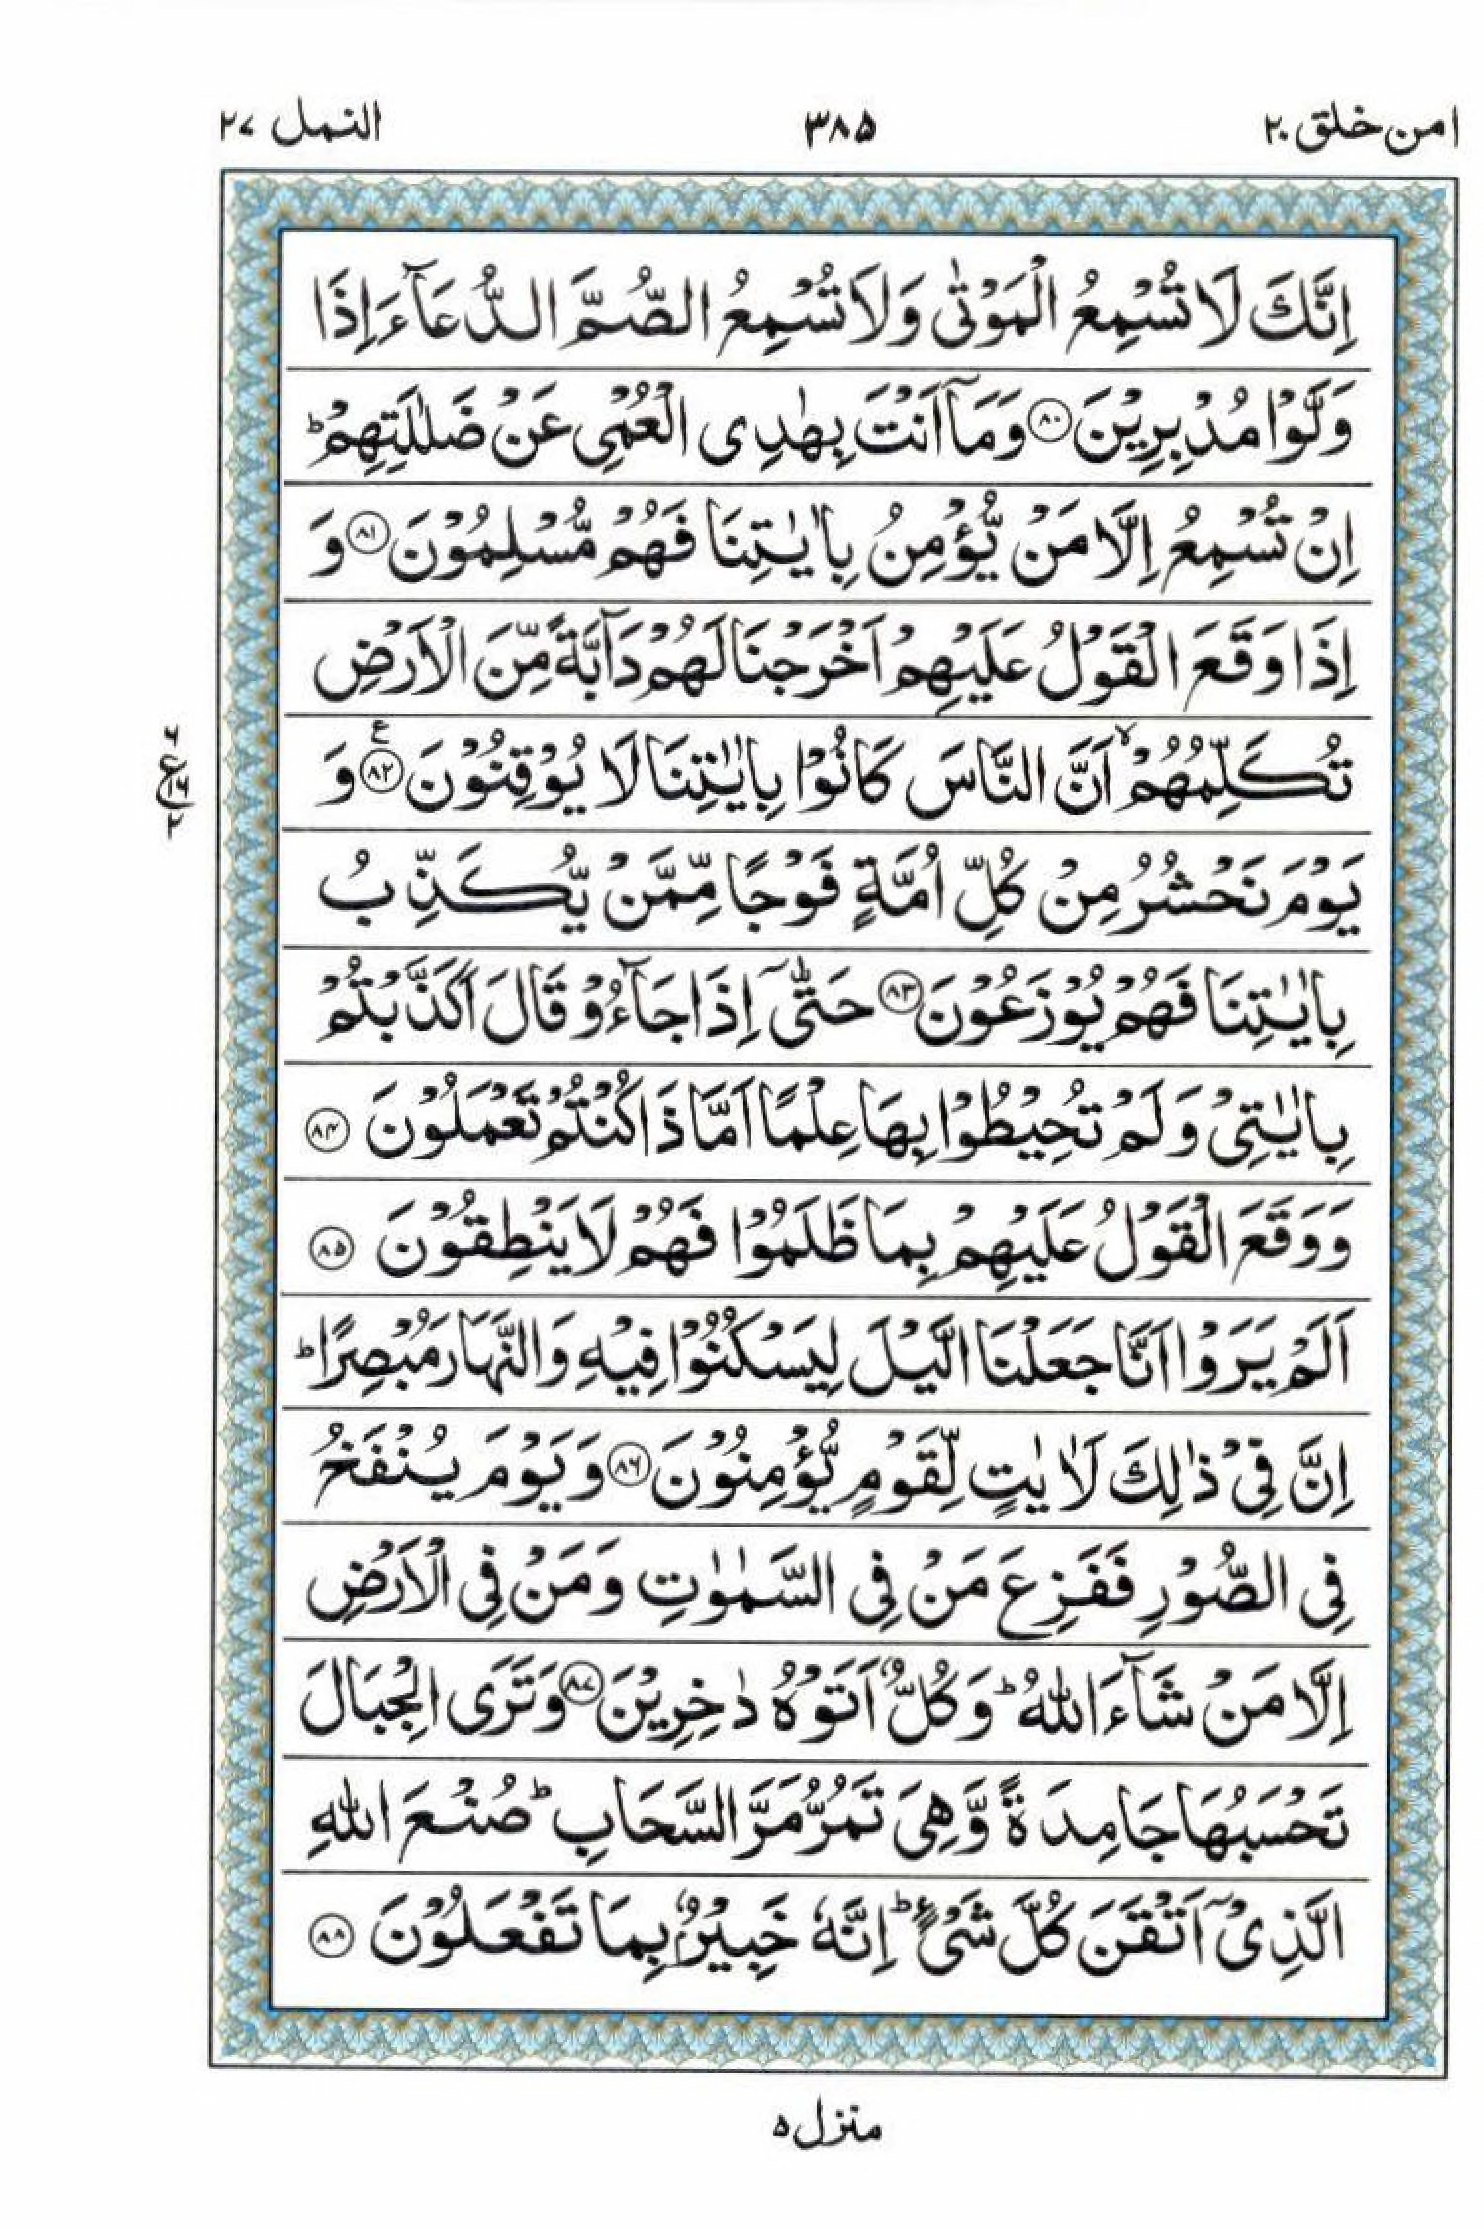 امن خلق ۲۰
۳۸۵
النمل ۲۷
اِنَّكَ لَا تُسْمِعُ الْمَوْتٰى وَلَا تُسْمِعُ الصُّمَّ الدُّعَآءَ اِذَا
وَلَّوْا مُدْبِرِيْنَ ۝۸۰ وَمَآ اَنْتَ بِهٰدِى الْعُمْىِ عَنْ ضَلٰلَتِهِمْ ؕ
اِنْ تُسْمِعُ اِلَّا مَنْ يُّؤْمِنُ بِاٰيٰتِنَا فَهُمْ مُّسْلِمُوْنَ ۝۸۱ وَ
اِذَا وَقَعَ الْقَوْلُ عَلَيْهِمْ اَخْرَجْنَا لَهُمْ دَآبَّةً مِّنَ الْاَرْضِ
تُكَلِّمُهُمْ ۙ اَنَّ النَّاسَ كَانُوْا بِاٰيٰتِنَا لَا يُوْقِنُوْنَ ۝۸۲ ع وَ
يَوْمَ نَحْشُرُ مِنْ كُلِّ اُمَّةٍ فَوْجًا مِّمَّنْ يُّكَذِّبُ
بِاٰيٰتِنَا فَهُمْ يُوْزَعُوْنَ ۝۸۳ حَتّٰىٓ اِذَا جَآءُوْ قَالَ اَكَذَّبْتُمْ
بِاٰيٰتِىْ وَلَمْ تُحِيْطُوْا بِهَا عِلْمًا اَمَّا ذَا كُنْتُمْ تَعْمَلُوْنَ ۝۸۴
وَوَقَعَ الْقَوْلُ عَلَيْهِمْ بِمَا ظَلَمُوْا فَهُمْ لَا يَنْطِقُوْنَ ۝۸۵
اَلَمْ يَرَوْا اَنَّا جَعَلْنَا الَّيْلَ لِيَسْكُنُوْا فِيْهِ وَالنَّهَارَ مُبْصِرًا ؕ
اِنَّ فِىْ ذٰلِكَ لَاٰيٰتٍ لِّقَوْمٍ يُّؤْمِنُوْنَ ۝۸۶ وَيَوْمَ يُنْفَخُ
فِى الصُّوْرِ فَفَزِعَ مَنْ فِى السَّمٰوٰتِ وَمَنْ فِى الْاَرْضِ
اِلَّا مَنْ شَآءَ اللّٰهُ ؕ وَكُلٌّ اَتَوْهُ دٰخِرِيْنَ ۝۸۷ وَتَرَى الْجِبَالَ
تَحْسَبُهَا جَامِدَةً وَّهِىَ تَمُرُّ مَرَّ السَّحَابِ ؕ صُنْعَ اللّٰهِ
الَّذِىْٓ اَتْقَنَ كُلَّ شَىْءٍ ؕ اِنَّهٗ خَبِيْرٌۢ بِمَا تَفْعَلُوْنَ ۝۸۸
منزل ۵